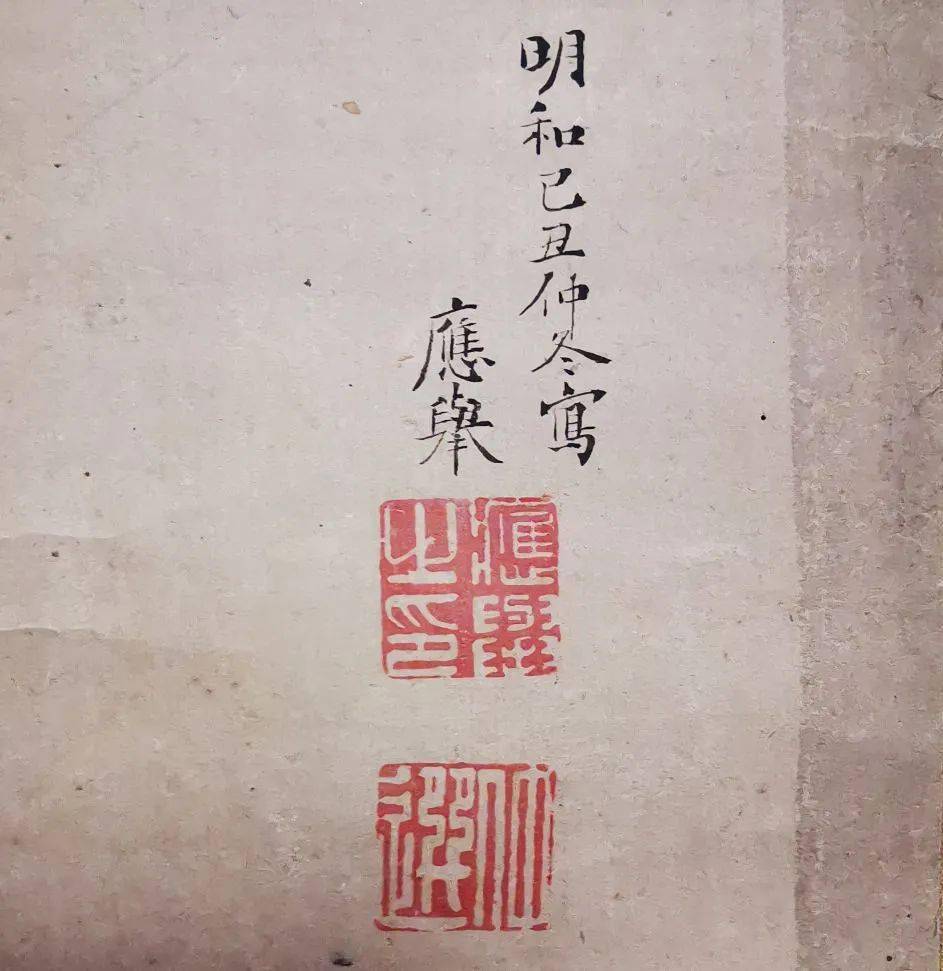 明和己丑仲冬寫
應舉
應舉之印
仲選